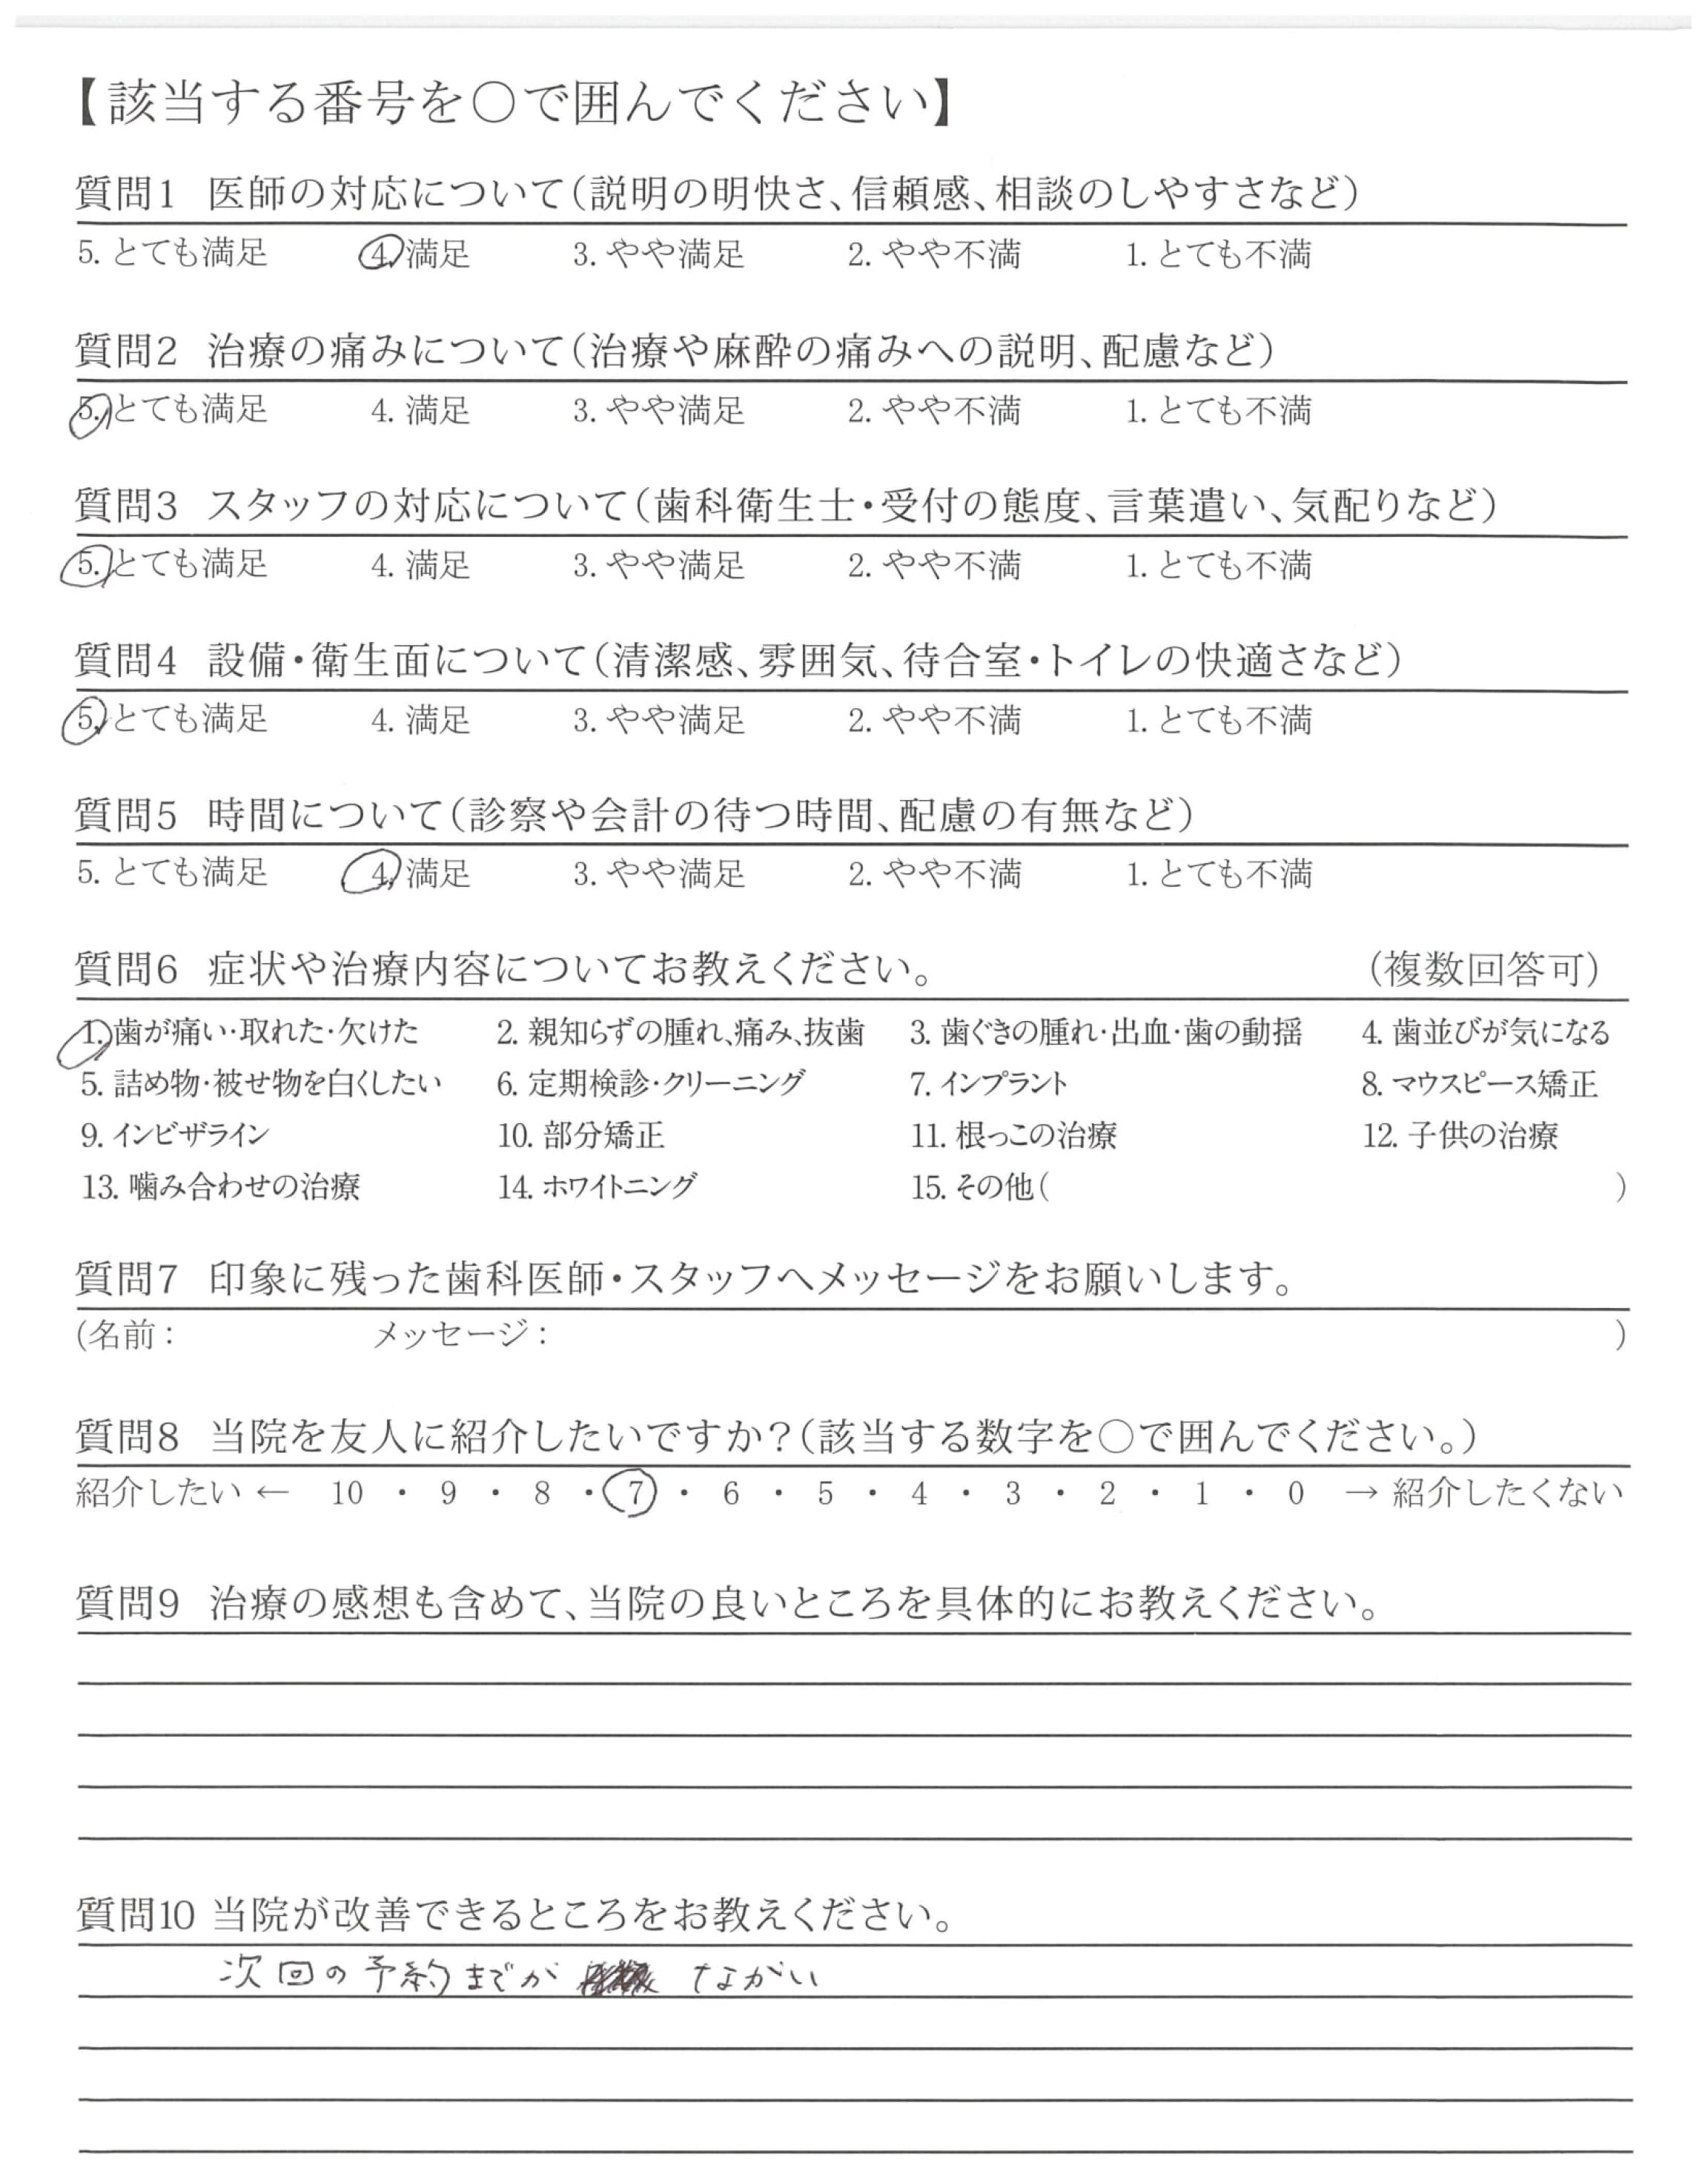 【該当する番号を〇で囲んでください】
質問1 医師の対応について(説明の明快さ、信頼感、相談のしやすさなど)
5. とても満足 4. 満足 3. やや満足 2. やや不満 1. とても不満
質問2 治療の痛みについて(治療や麻酔の痛みへの説明、配慮など)
5. とても満足 4. 満足 3. やや満足 2. やや不満 1. とても不満
質問3 スタッフの対応について(歯科衛生士・受付の態度、言葉遣い、気配りなど)
5. とても満足 4. 満足 3. やや満足 2. やや不満 1. とても不満
質問4 設備・衛生面について(清潔感、雰囲気、待合室・トイレの快適さなど)
5. とても満足 4. 満足 3. やや満足 2. やや不満 1. とても不満
質問5 時間について(診察や会計の待つ時間、配慮の有無など)
5. とても満足 4. 満足 3. やや満足 2. やや不満 1. とても不満
質問6 症状や治療内容についてお教えください。 (複数回答可)
1. 歯が痛い・取れた・欠けた 2. 親知らずの腫れ、痛み、抜歯 3. 歯ぐきの腫れ・出血・歯の動揺 4. 歯並びが気になる
5. 詰め物・被せ物を白くしたい 6. 定期検診・クリーニング 7. インプラント 8. マウスピース矯正
9. インビザライン 10. 部分矯正 11. 根っこの治療 12. 子供の治療
13. 噛み合わせの治療 14. ホワイトニング 15. その他( )
質問7 印象に残った歯科医師・スタッフへメッセージをお願いします。
(名前: メッセージ: )
質問8 当院を友人に紹介したいですか?(該当する数字を〇で囲んでください。)
紹介したい ← 10 ・ 9 ・ 8 ・ 7 ・ 6 ・ 5 ・ 4 ・ 3 ・ 2 ・ 1 ・ 0 → 紹介したくない
質問9 治療の感想も含めて、当院の良いところを具体的にお教えください。
質問10 当院が改善できるところをお教えください。
次回の予約までが ながい